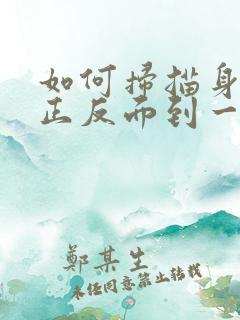 如何掃描身
正反面到一
鄭某生
未经同意禁止转载